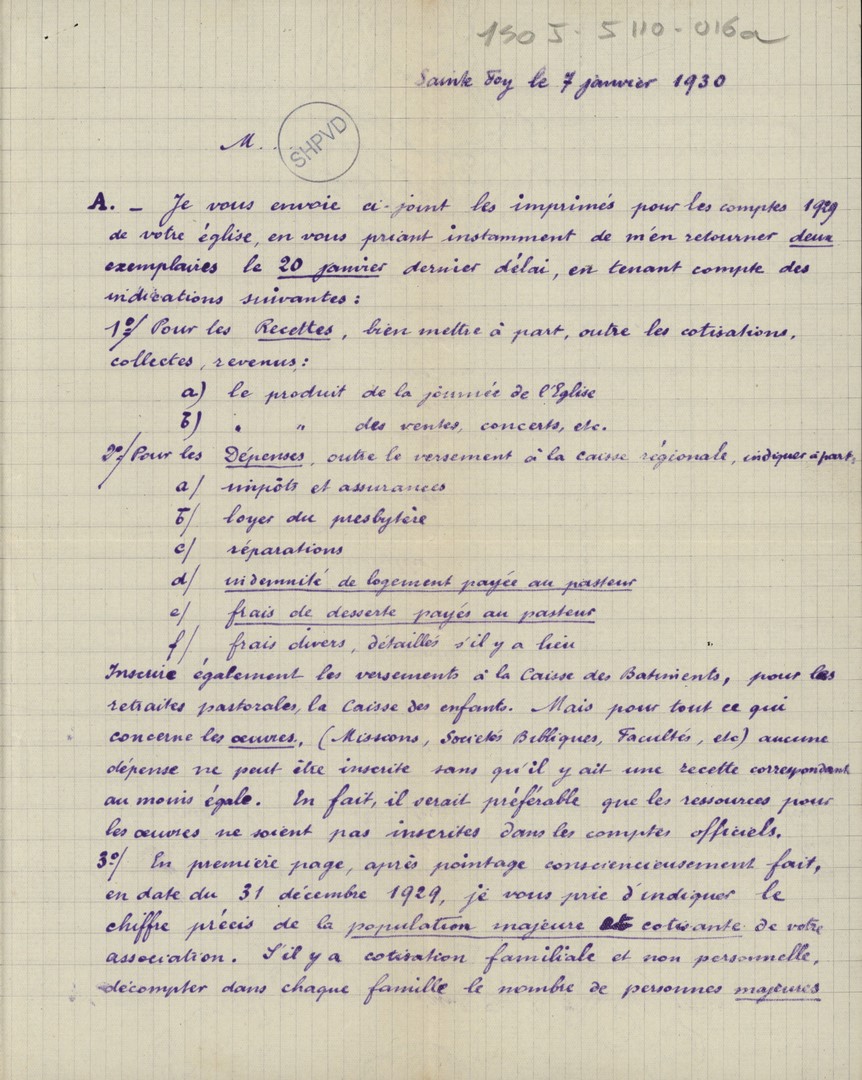 1905-5110-016a
Sainte Foy le 7 janvier 1930
M..
SHPVD
A. - Je vous envoie ci-joint les imprimés pour les comptes 1929
de votre église, en vous priant instamment de m'en retourner deux
exemplaires le 20 janvier dernier délai, en tenant compte des
indications suivantes :
1º/ Pour les Recettes, bien mettre à part, outre les cotisations,
collectes, revenus :
a) le produit de la journée de l'Eglise
b) " " des ventes, concerts, etc.
2º/ Pour les Dépenses, outre le versement à la caisse régionale, indiquer à part :
a/ impôts et assurances
b/ loyer du presbytère
c/ réparations
d/ indemnité de logement payée au pasteur
e/ frais de desserte payés au pasteur
f/ frais divers, détaillés s'il y a lieu
Inscrire également les versements à la Caisse des Batiments, pour les
retraites pastorales, la Caisse des enfants. Mais pour tout ce qui
concerne les œuvres, (Missions, Sociétés Bibliques, Facultés, etc) aucune
dépense ne peut être inscrite sans qu'il y ait une recette correspondante
au moins égale. En fait, il serait préférable que les ressources pour
les œuvres ne soient pas inscrites dans les comptes officiels.
3º/ En première page, après pointage consciencieusement fait,
en date du 31 décembre 1929, je vous prie d'indiquer le
chiffre précis de la population majeure et cotisante de votre
association. S'il y a cotisation familiale et non personnelle,
décompter dans chaque famille le nombre de personnes majeures